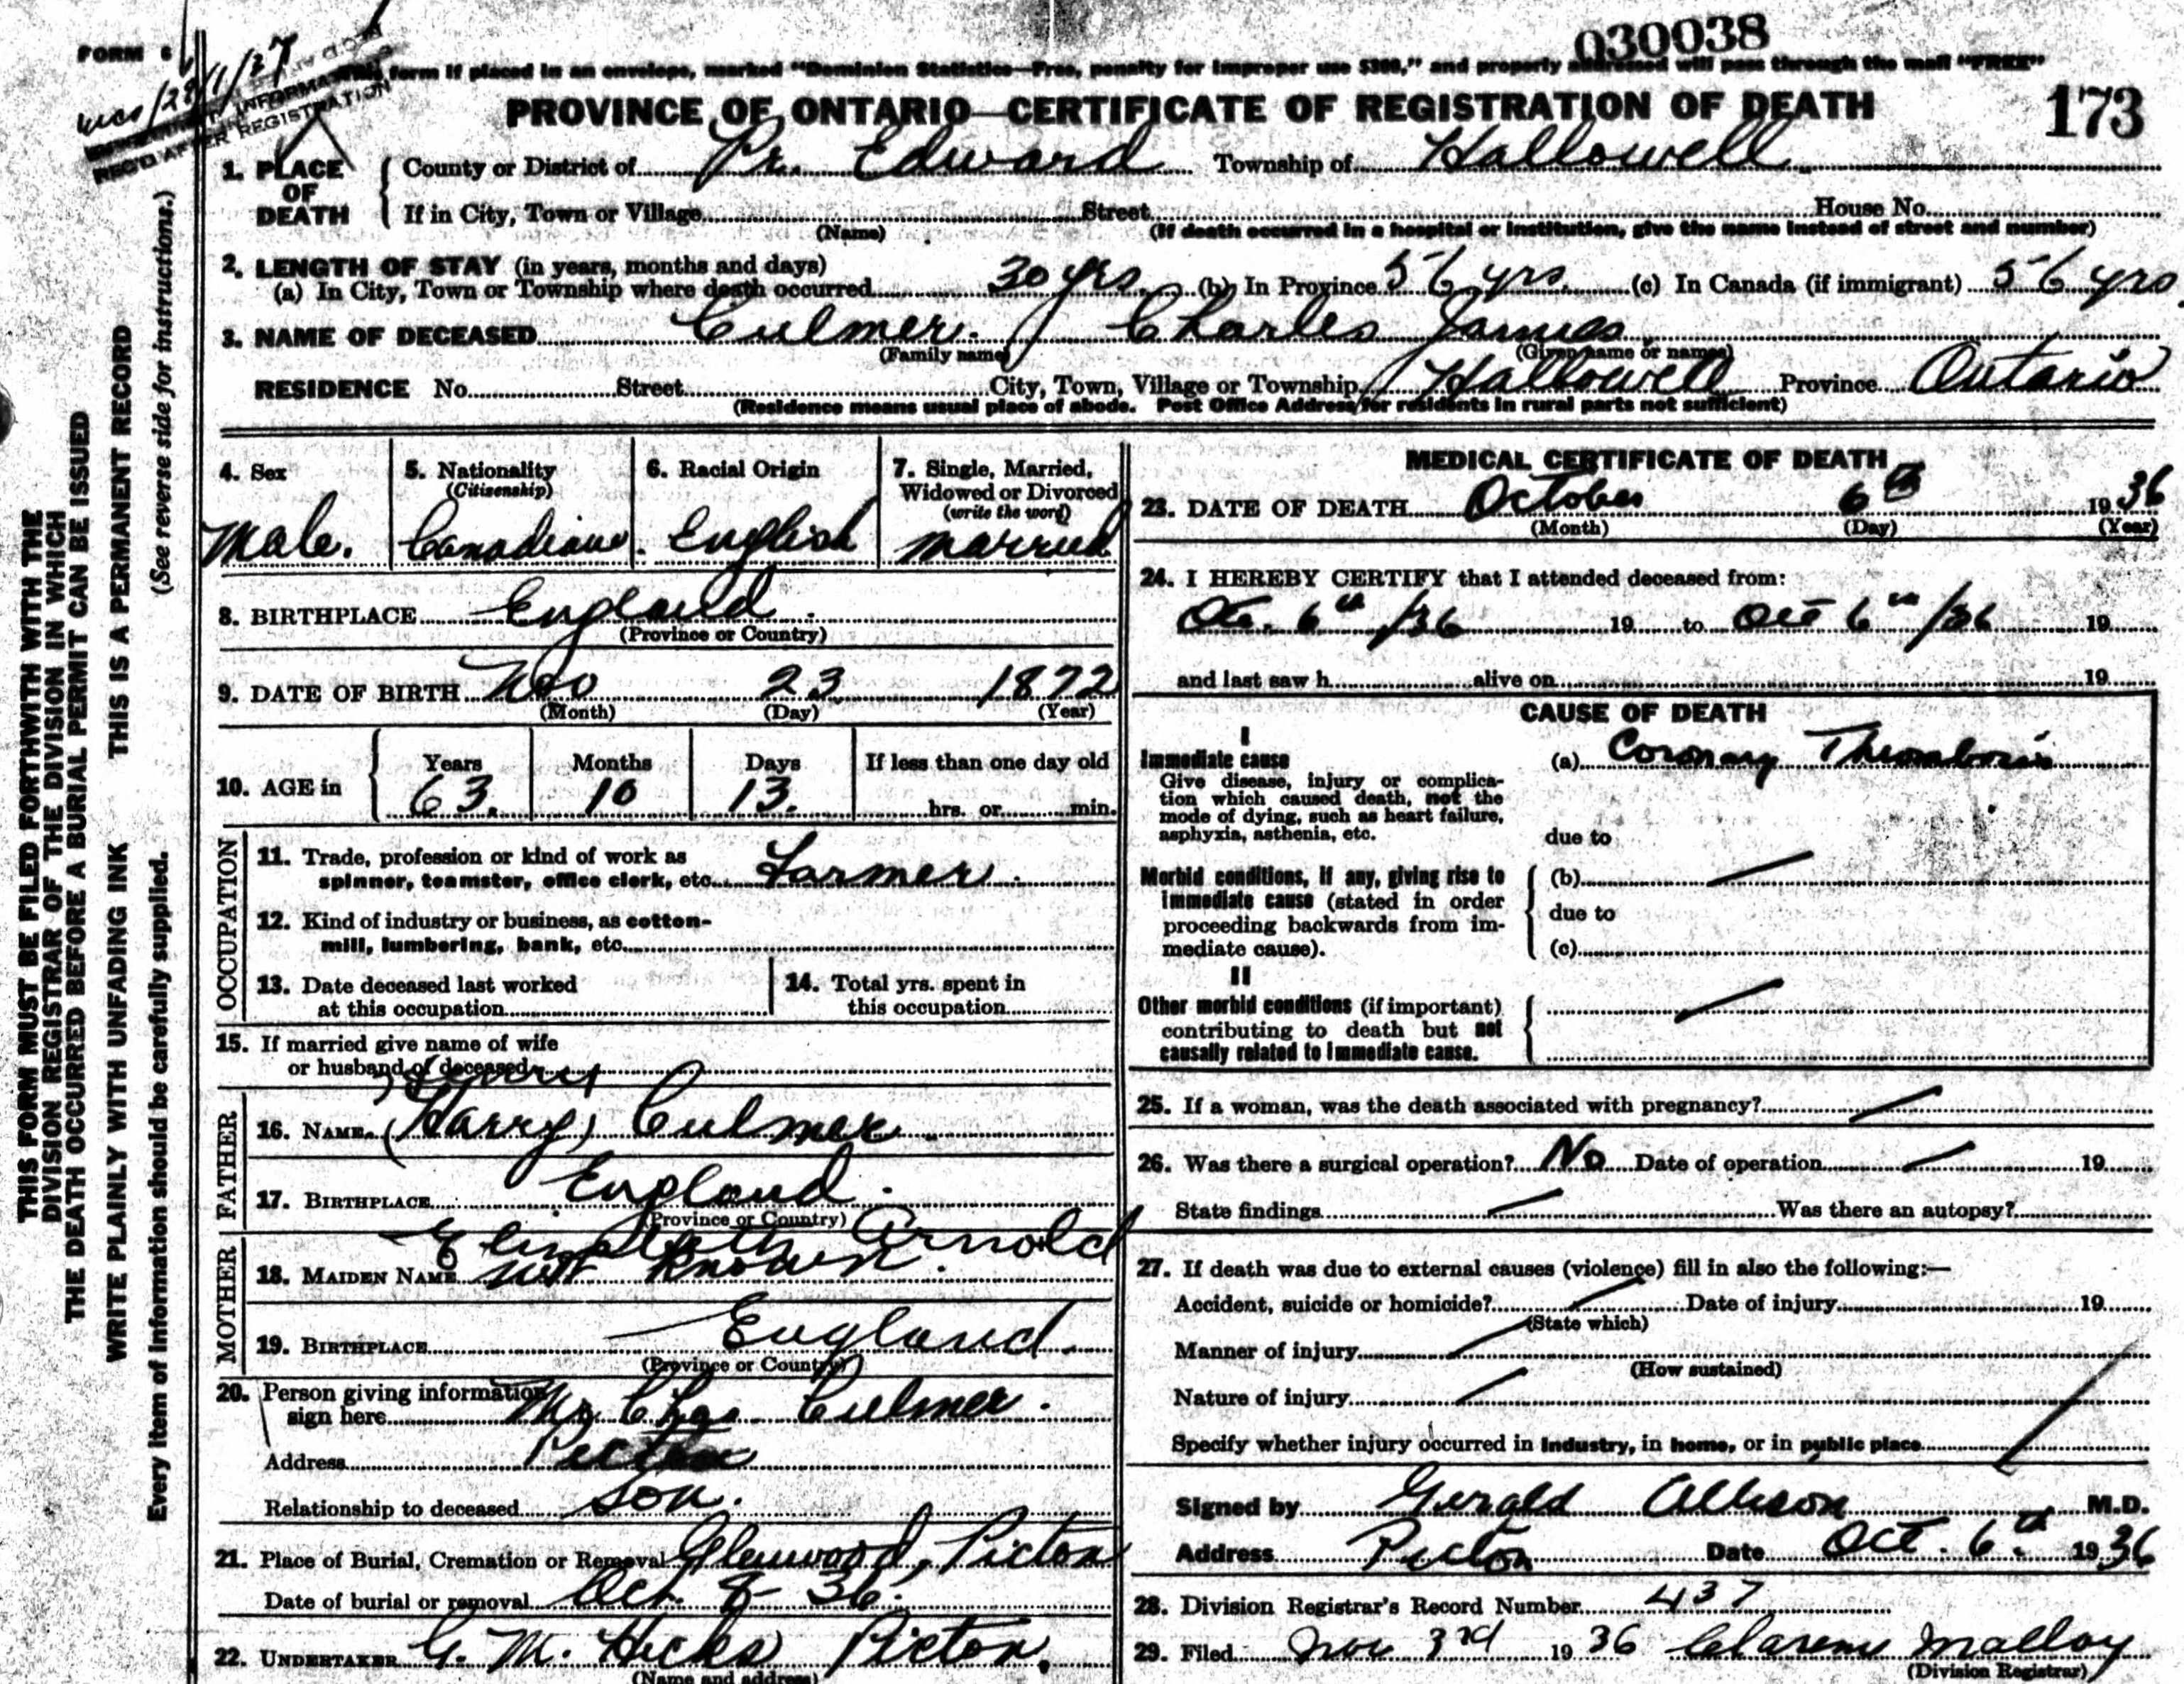 030038
FORM 6
form if placed in an envelope, marked "Dominion Statistics—Free, penalty for improper use $300," and properly addressed will pass through the mail "FREE"
INFORMATION
REC'D AFTER REGISTRATION
PROVINCE OF ONTARIO—CERTIFICATE OF REGISTRATION OF DEATH 173
1. PLACE OF DEATH County or District of Pr. Edward Township of Hallowell
If in City, Town or Village Street House No.
(Name) (If death occurred in a hospital or institution, give the name instead of street and number)
2. LENGTH OF STAY (in years, months and days)
(a) In City, Town or Township where death occurred 30 yrs. (b) In Province 56 yrs. (c) In Canada (if immigrant) 56 yrs
3. NAME OF DECEASED Culmer. Charles James
(Family name) (Given name or names)
RESIDENCE No. Street City, Town, Village or Township Hallowell Province Ontario
(Residence means usual place of abode. Post Office Address for residents in rural parts not sufficient)
THIS FORM MUST BE FILED FORTHWITH WITH THE
DIVISION REGISTRAR OF THE DIVISION IN WHICH
THE DEATH OCCURRED BEFORE A BURIAL PERMIT CAN BE ISSUED
WRITE PLAINLY WITH UNFADING INK THIS IS A PERMANENT RECORD
Every item of information should be carefully supplied. (See reverse side for instructions.)
4. Sex 5. Nationality 6. Racial Origin 7. Single, Married,
(Citizenship) Widowed or Divorced
(write the word)
Male. Canadian. English married
8. BIRTHPLACE England
(Province or Country)
9. DATE OF BIRTH Nov 23 1872
(Month) (Day) (Year)
10. AGE in Years Months Days If less than one day old
63. 10 13. hrs. or min.
OCCUPATION
11. Trade, profession or kind of work as
spinner, teamster, office clerk, etc. Farmer
12. Kind of industry or business, as cotton-
mill, lumbering, bank, etc.
13. Date deceased last worked
at this occupation
14. Total yrs. spent in
this occupation
15. If married give name of wife
or husband of deceased
FATHER
Henry
16. NAME (Harry) Culmer
17. BIRTHPLACE England.
(Province or Country)
MOTHER
Elizabeth Arnold
18. MAIDEN NAME not known.
19. BIRTHPLACE England.
(Province or Country)
20. Person giving information
sign here Mr Chas Culmer.
Address Picton
Relationship to deceased son.
21. Place of Burial, Cremation or Removal Glenwood, Picton
Date of burial or removal Oct. 8- 36.
22. UNDERTAKER G. M. Hicks Picton.
(Name and address)
MEDICAL CERTIFICATE OF DEATH
23. DATE OF DEATH October 6th 1936
(Month) (Day) (Year)
24. I HEREBY CERTIFY that I attended deceased from:
Oct. 6th /36 19 to Oct 6th /36 19
and last saw h alive on 19
CAUSE OF DEATH
I
Immediate cause (a) Coronary Thrombosis
Give disease, injury or complica-
tion which caused death, not the
mode of dying, such as heart failure,
asphyxia, asthenia, etc. due to
Morbid conditions, if any, giving rise to (b)
immediate cause (stated in order due to
proceeding backwards from im-
mediate cause). (c)
II
Other morbid conditions (if important)
contributing to death but not
causally related to immediate cause.
25. If a woman, was the death associated with pregnancy?
26. Was there a surgical operation? No Date of operation 19
State findings Was there an autopsy?
27. If death was due to external causes (violence) fill in also the following:—
Accident, suicide or homicide? Date of injury 19
(State which)
Manner of injury
(How sustained)
Nature of injury
Specify whether injury occurred in industry, in home, or in public place
Signed by Gerald Allison M.D.
Address Picton Date Oct. 6th 1936
28. Division Registrar's Record Number 437
29. Filed Nov 3rd 1936 Clarence Malloy
(Division Registrar)